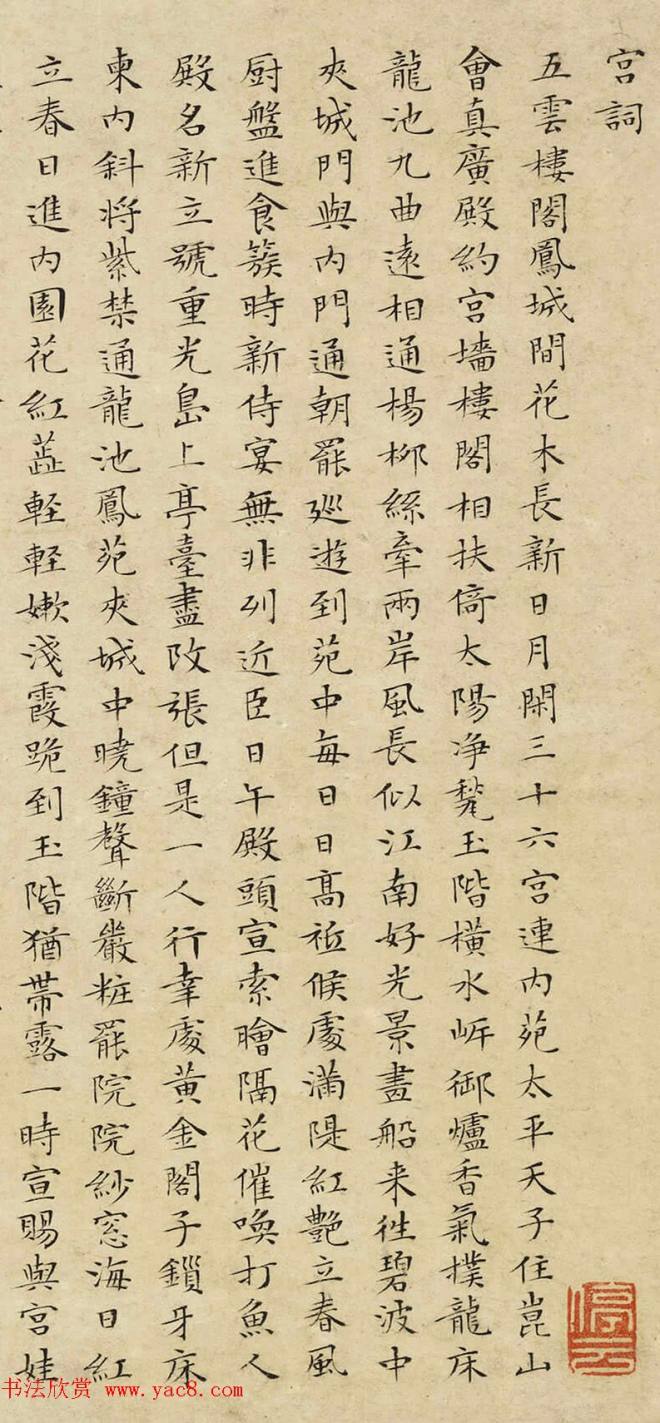 宮詞
五雲樓閣鳳城間花木長新日月閑三十六宮連内苑太平天子住崑山
會真廣殿約宮墻樓閣相扶倚太陽净甃玉階橫水岸御爐香氣撲龍床
龍池九曲遠相通楊柳絲牽兩岸風長似江南好光景畫船来往碧波中
夾城門與内門通朝罷巡遊到苑中每日日高祗候處满隄紅艷立春風
厨盤進食簇時新侍宴無非列近臣日午殿頭宣索鱠隔花催喚打魚人
殿名新立號重光島上亭臺盡改張但是一人行幸處黄金閣子鎖牙床
東内斜将紫禁通龍池鳳苑夾城中曉鐘聲斷嚴粧罷院院紗窓海日紅
立春日進内園花紅蕋軽軽嫩淺霞跪到玉階猶帶露一時宣賜與宮娃
书法欣赏 www.yac8.com